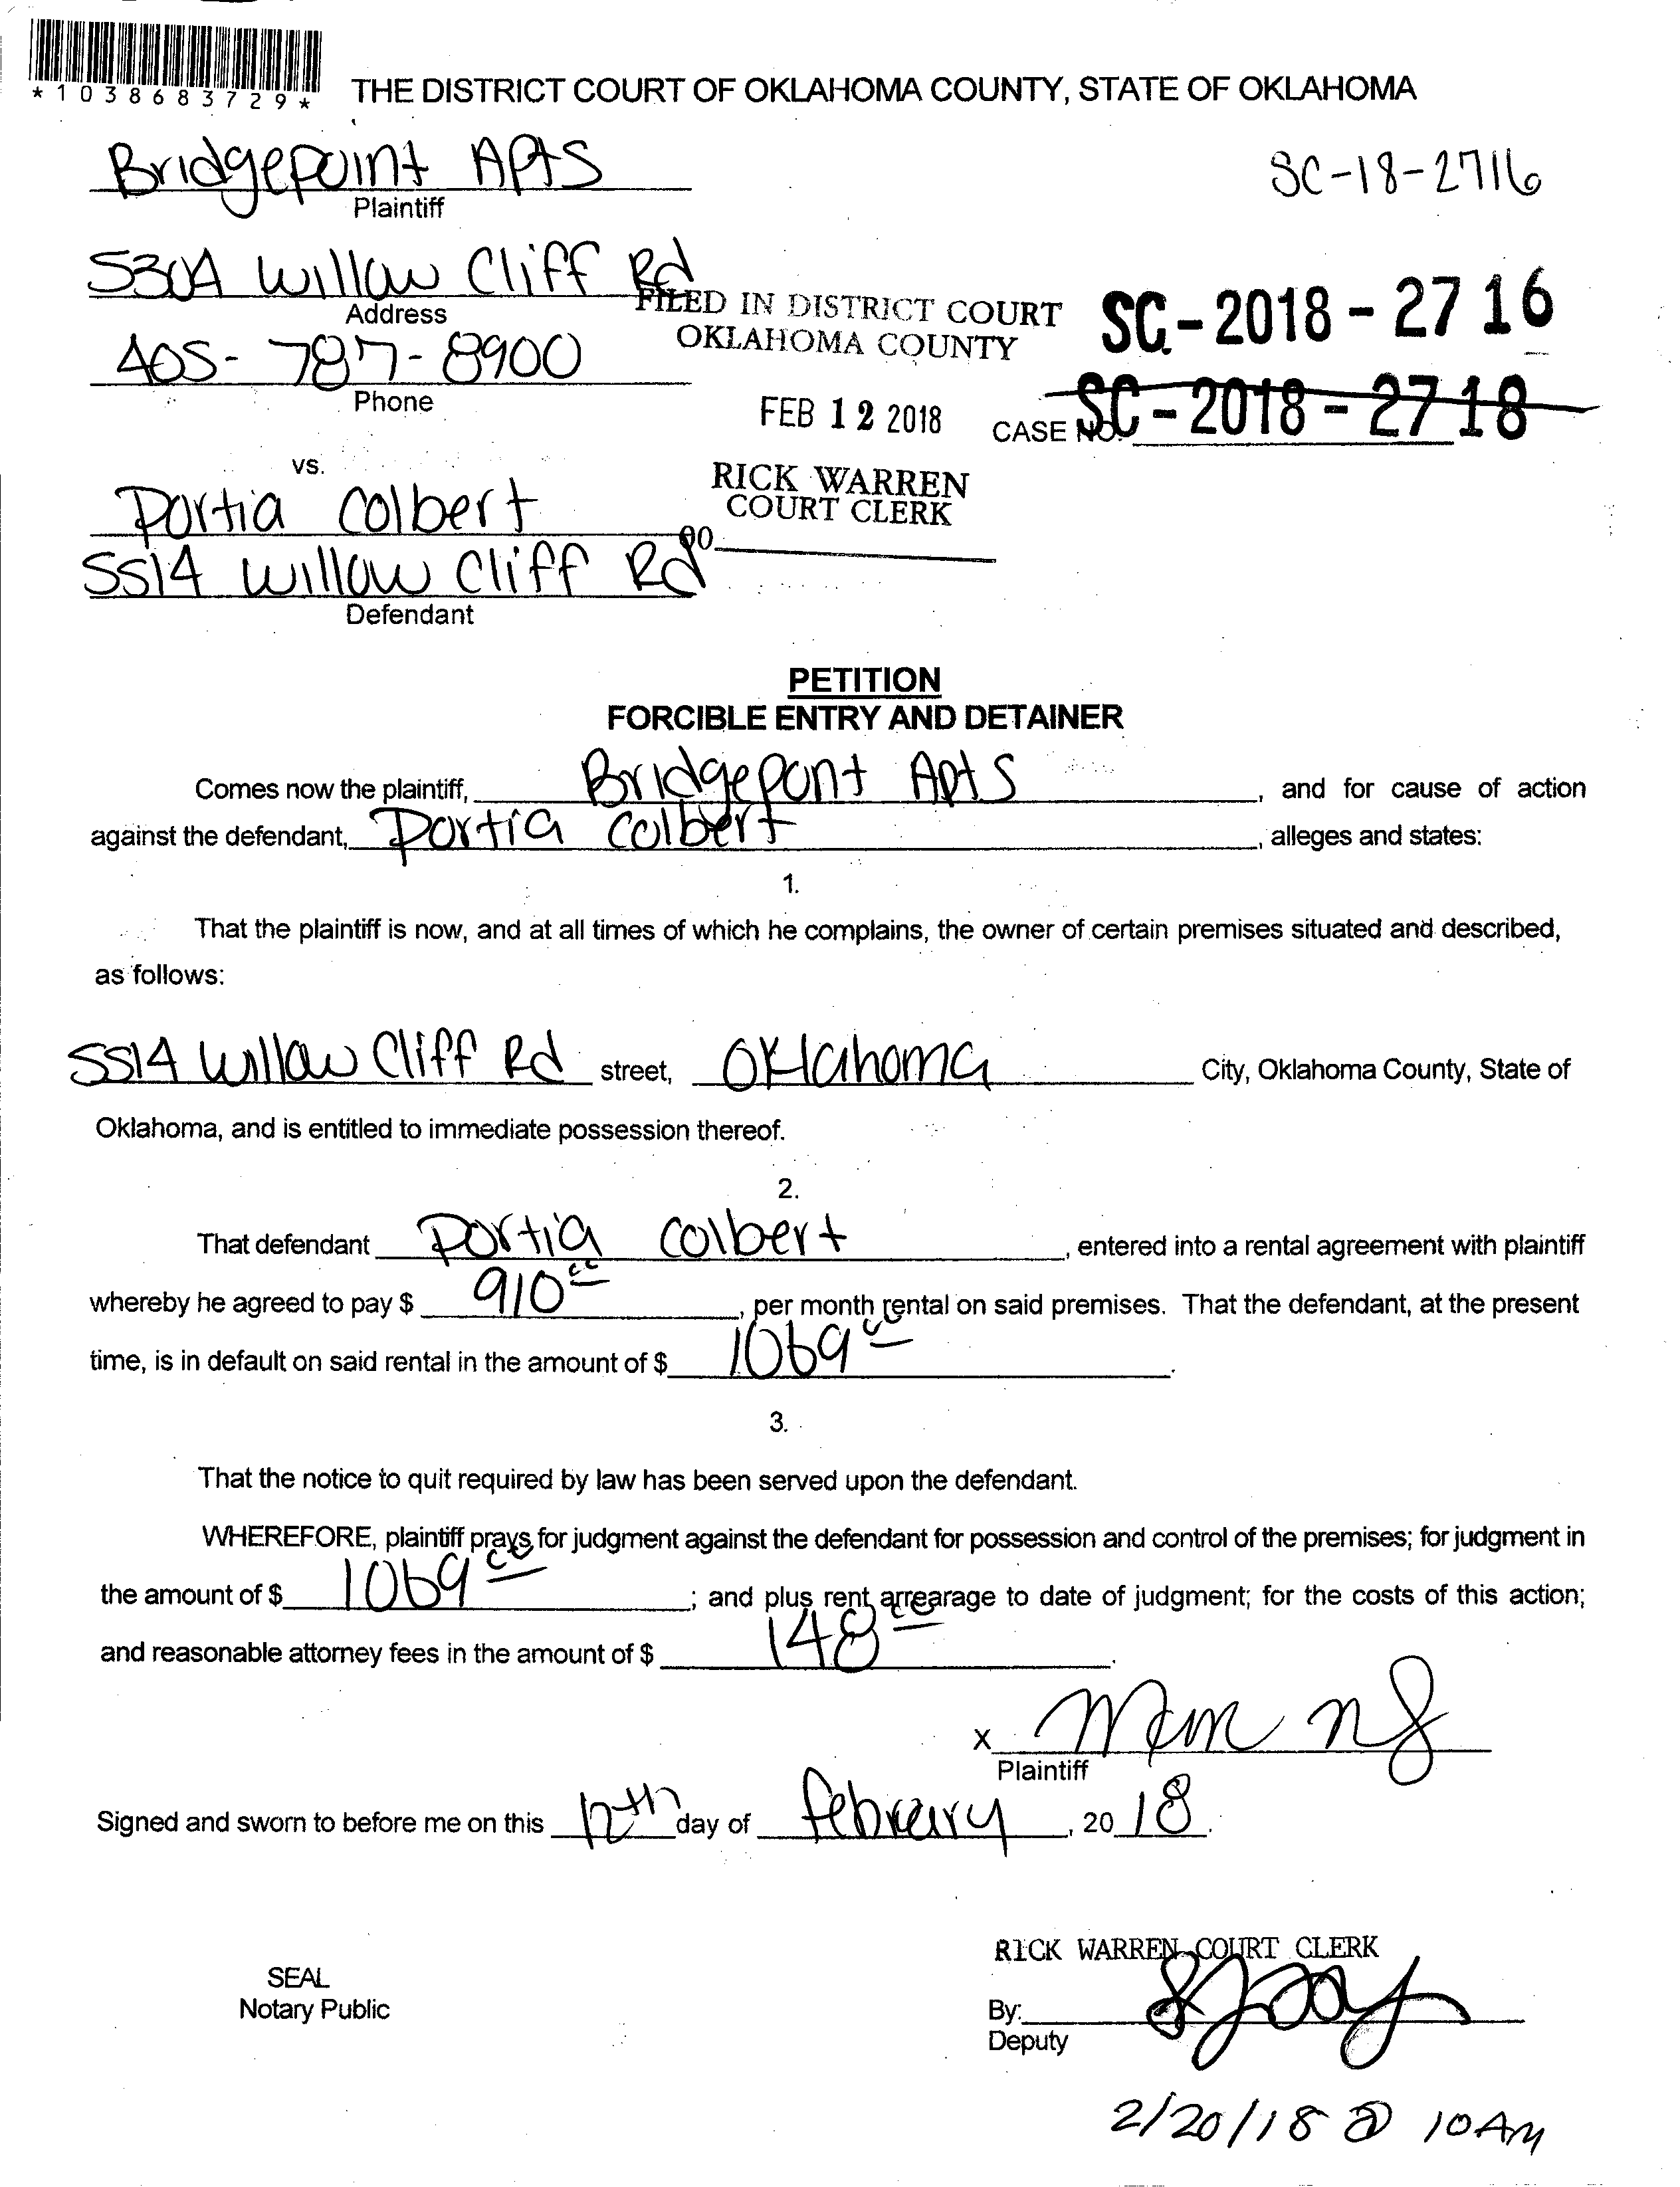 *1038683729*
THE DISTRICT COURT OF OKLAHOMA COUNTY, STATE OF OKLAHOMA
Bridgepoint Apts
Plaintiff
SC-18-2716
5304 Willow Cliff Rd
Address
FILED IN DISTRICT COURT
OKLAHOMA COUNTY
SC-2018-2716
405-787-8900
Phone
FEB 12 2018
CASE NO. SC-2018-2718
vs.
RICK WARREN
COURT CLERK
Portia Colbert
5514 Willow Cliff Rd
Defendant
PETITION
FORCIBLE ENTRY AND DETAINER
Comes now the plaintiff, Bridgepont Apts, and for cause of action
against the defendant, Portia Colbert, alleges and states:
1.
That the plaintiff is now, and at all times of which he complains, the owner of certain premises situated and described,
as follows:
5514 Willow Cliff Rd street, Oklahoma City, Oklahoma County, State of
Oklahoma, and is entitled to immediate possession thereof.
2.
That defendant Portia Colbert, entered into a rental agreement with plaintiff
whereby he agreed to pay $ 910 00, per month rental on said premises. That the defendant, at the present
time, is in default on said rental in the amount of $ 1069 00.
3.
That the notice to quit required by law has been served upon the defendant.
WHEREFORE, plaintiff prays for judgment against the defendant for possession and control of the premises; for judgment in
the amount of $ 1069 00; and plus rent arrearage to date of judgment; for the costs of this action;
and reasonable attorney fees in the amount of $ 148 00.
X
Plaintiff
Signed and sworn to before me on this 12th day of february, 20 18.
RICK WARREN COURT CLERK
SEAL
Notary Public
By:
Deputy
2/20/18 @ 10AM